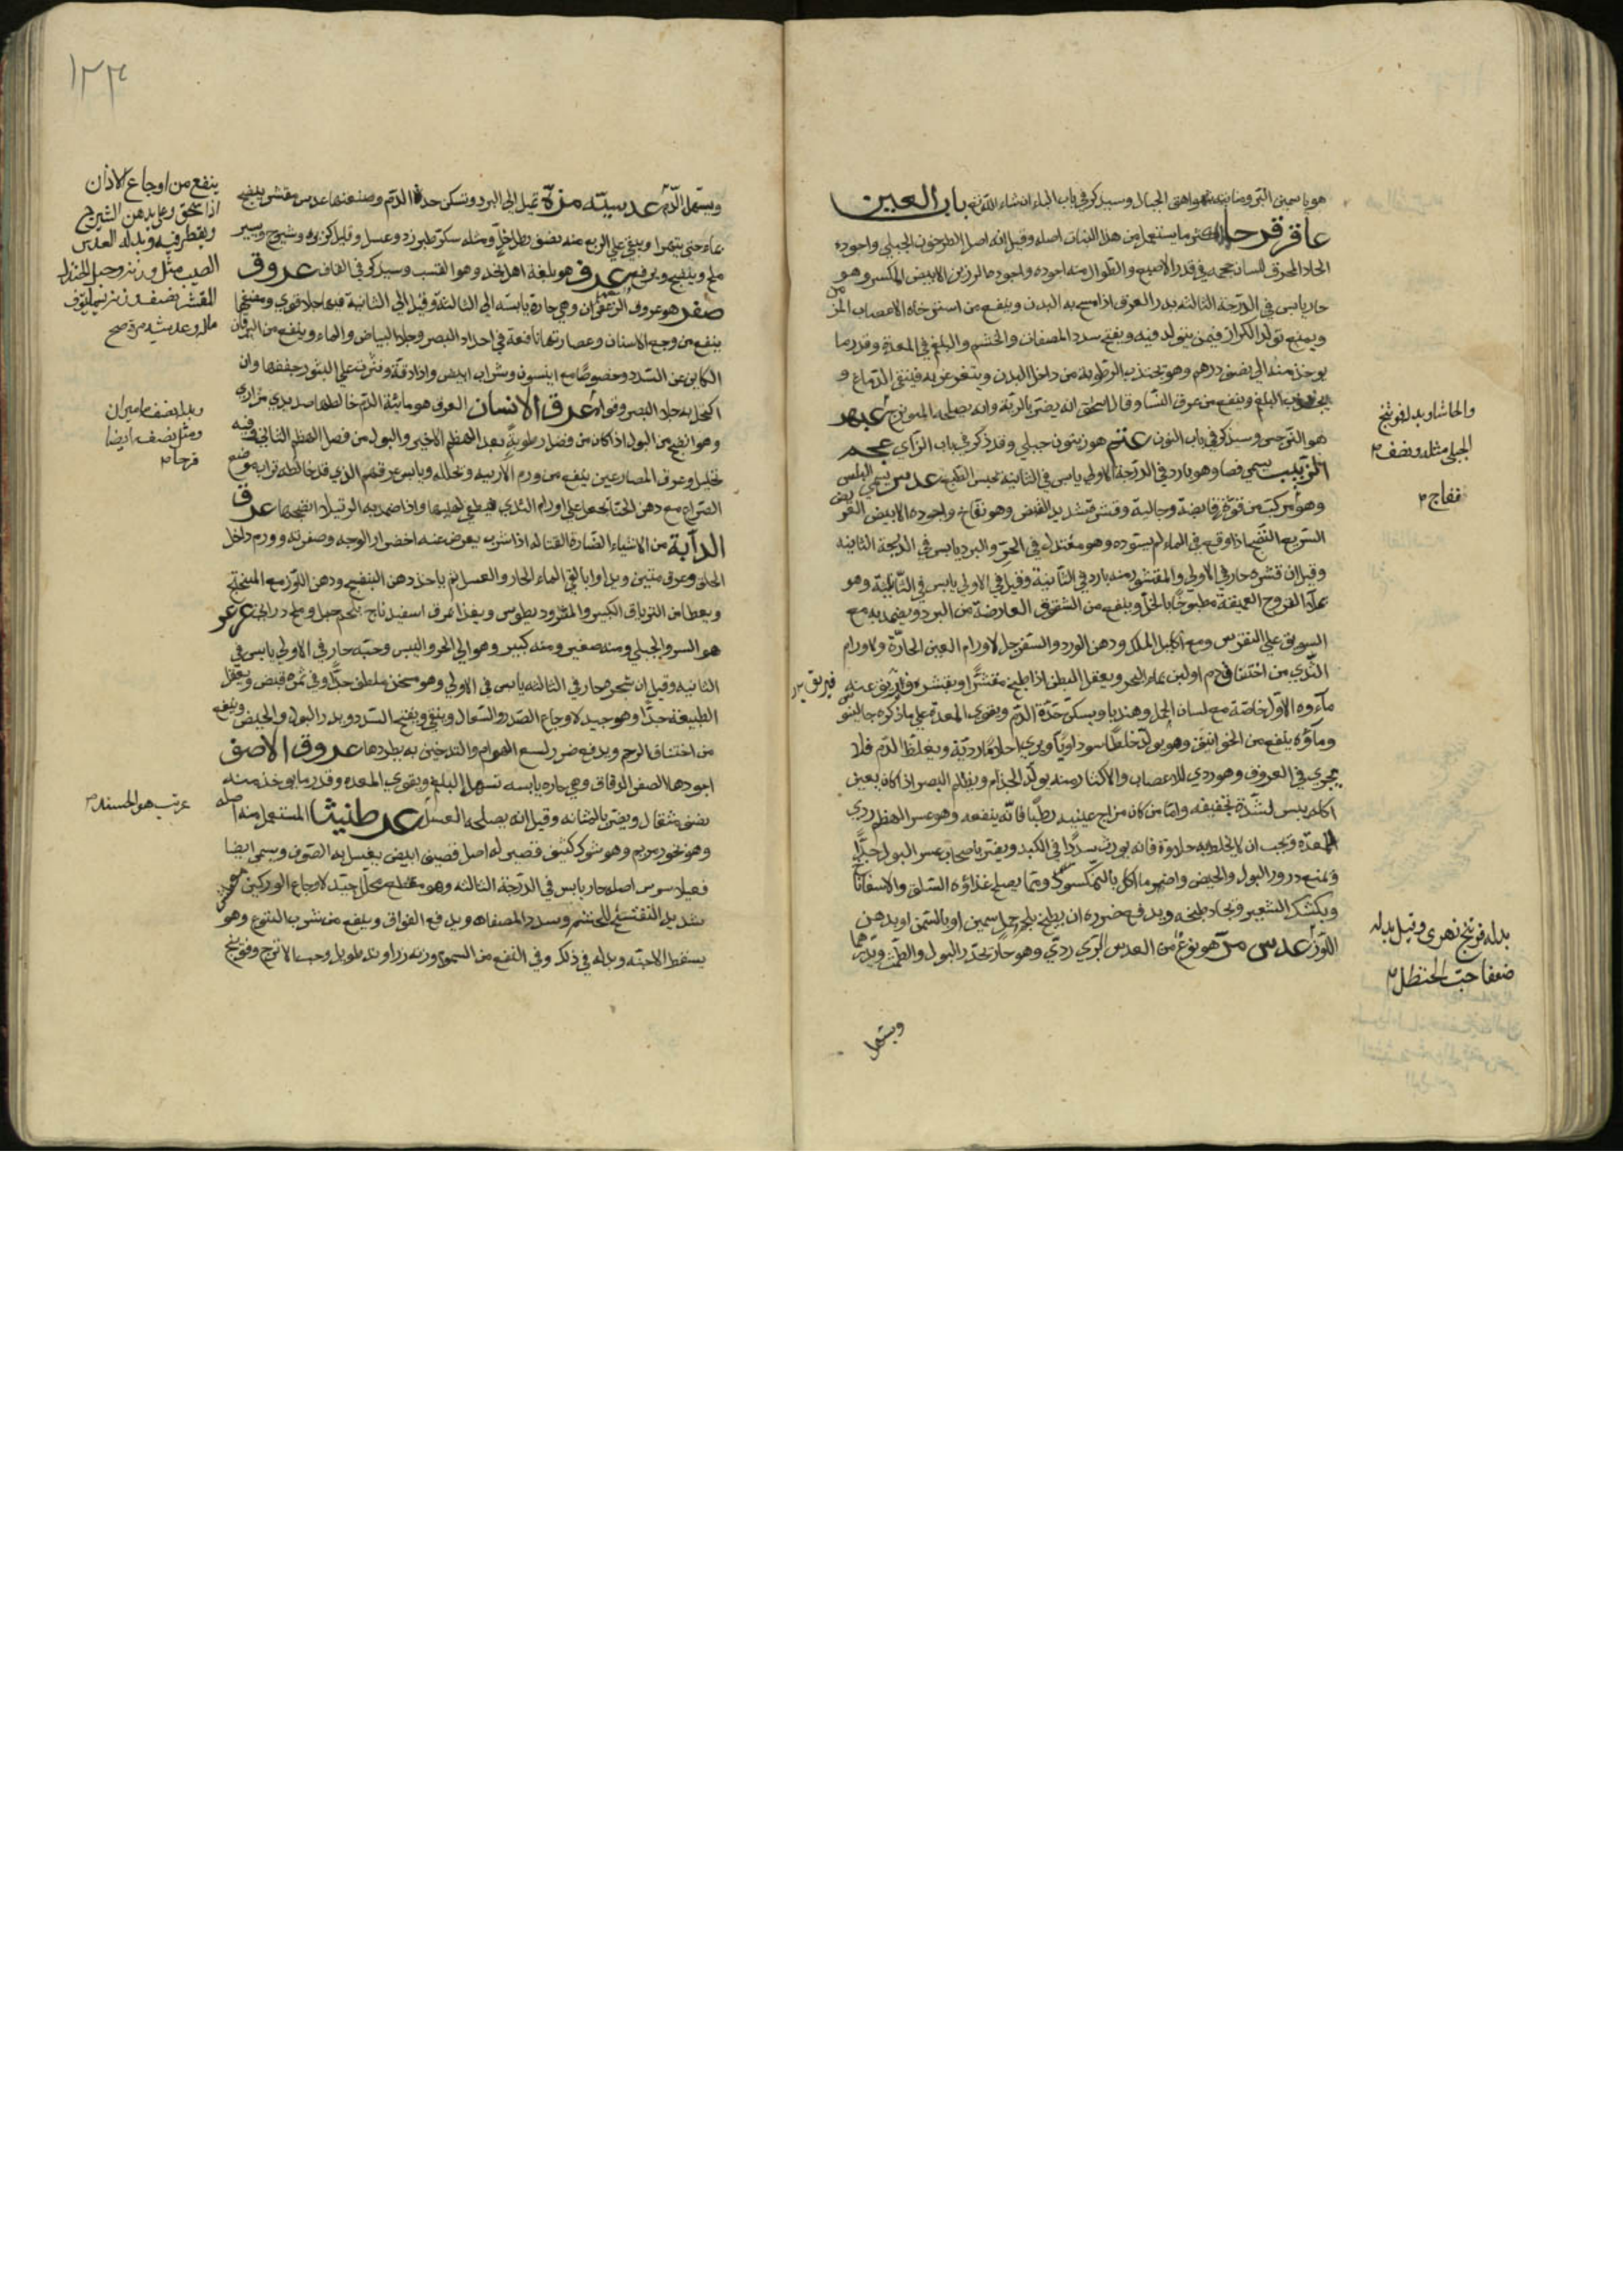 هو ياسمين البر ومنابته نهواهتى الجبال وسيذكر في باب الياء ان شاء الله تع باب العين
عاقرقرحا اكثر ما يستعمل من هذا النبات اصله وقيل انه اصل الطرخون الجبلي واجوده
الحاد المحرق للسان حجمه في قدر الاصبع والطوال منه اجوده واجوده الرزين الابيض المكسر وهو
حار يابس في الدرجة الثالثه يدر العرق اذا مسح به البدن وينفع من استرخاء الاعصاب المزمن
ويمنع تولد الكزاز فيمن يتولد فيه ويفتح سدد المصفات والخشم والبلغم في المعدة وقدر ما
يوخذ منه الى نصف درهم وهو يجذب الرطوبه من داخل البدن ويتغرغر به فينقي الدماغ و
يجذب البلغم وينفع من عرق النسا وقال اسحق انه يضر بالرية وانه يصلحه الميويزج عبهر
هو النرجس وسيذكر في باب النون عتم هو زيتون جبلي وقد ذكر في باب الزاي عجم
الزبيب يسمى فصا وهو بارد في الدرجة الاولى يابس في الثانيه يحبس الطبع عدس يسمى البلس
وهو مركب من قوة قابضة وجالية وقشره شديد القبض وهو نفاخ واجوده الابيض العريض
السريع النضج اذا وقع في الماء لم يسوده وهو معتدل في الحر والبرد يابس في الدرجة الثانيه
وقيل ان قشره حار في الاولى والمقشور منه بارد في الثانية وقيل في الاولى يابس في الثالثة وهو
يملأ القروح العميقة مطبوخا بالخل وينفع من الشقوق العارضة من البرد ويضمد به مع
السويق على النقرس ومع اكليل الملك ودهن الورد والسفرجل لاورام العين الحارة ولاورام
الثدي من احتقان دم او لبن بماء البحر ويعقل البطن اذا طبخ مقشرا وبقشره واريق عنه
ماءوه الاول خاصة مع لسان الحمل وهنديا ويسكن حدة الدم ويقوي المعدة على ما ذكره جالينوس
وماؤه ينفع من الخوانيق وهو يولد خلطا سوداويا ويري احلاما ردية ويغلظ الدم فلا
يجري في العروق وهو ردي للاعصاب والاكثار منه يولد الجذام ويظلم البصر اذا كان بعين
اكله يبس لشدة تجفيفه واما من كان مزاج عينيه رطبا فانه ينفعه وهو عسر الهضم ردي
للمعدة ويجب ان لا يخلط به حلاوة فانه يورث سددا في الكبد ويضر باصحاب عسر البول جدا
ويمنع درور البول والحيض واضر ما اكل بالنمكسود ومما يصلح غذاؤه السلق والاسفاناخ
وبكشك الشعير ويجاد طبخه ويدفع ضرره ان يطبخ بلحم حمل سمين او بالسمن او بدهن
اللوز عدس مر هو نوع من العدس البري ردي وهو حار يحدر البول والطمث ويدرهما
ويسهل
والحاشا وبدله فوتنج
الجبلي مثله ونصف
فقاح
فيريق
بدله فوتنج نهري وقيل بدله
ضعفا حب الحنظل
١٢٣
ويسهل الدم عدسيته مزة تميل الى البرد وتسكن حدة الدم وصنعتها عدس مقشر يطبخ
بماء حتى يتهرا ويبقى على الربع منه نصف رطل خل ومثله سكر طبرزد وعسل وقليل كزبره وشيرج ويسير
ملح وينضج ويرفع عدف هو بلغة اهل نجد وهو القسب وسيذكر في القاف عروق
صفر هو عروف الزعفران وهي حارة يابسه الى الثالثة وقيل الى الثانية فيها جلا قوي ومضغها
ينفع من وجع الاسنان وعصارتها نافعة في احداد البصر وجلا البياض والماء وينفع من اليرقان
الكاين عن السدد وخصوصا مع انيسون وشراب ابيض واذا دقة ونثرت على البثور جففها وان
اكتحل به جلا البصر وقواه عرق الانسان العرق هو مائية الدم خالطها صديدي مراري
وهو انضج من البول اذا كان من فضل رطوبة بعد الهضم الاخير والبول من فضل الهضم الثاني وفيه
تحليل وعرق المصارعين ينفع من ورم الاربيه ويحلله ويابس عرقهم الذي قد خالطه تراب موضع
الصراع مع دهن الحنا يجعل على اورام الثدي فيطفي لهيبها واذا ضمد به الرتيلا انضجها عرق
الدابة من الاشياء الضارة القتاله اذا شرب يعرض عنه اخضرار الوجه وصفرته وورم داخل
الحلق وعرق منتن ويداوا بالقي بالماء الحار والعسل ثم ياخذ دهن البنفسج ودهن اللوز مع الميبختج
ويعطا من الترياق الكبير والمثرود يطوس ويغذا بمرق اسفيدباج بلحم حمل وملح دراني عرعر
هو السرو الجبلي ومنه صغير ومنه كبير وهو الى الحر واليبس وحبه حار في الاولى يابس في
الثانيه وقيل ان شجره حار في الثالثه يابس في الاولى وهو مسخن ملطف جدا وفي ثمره قبض ويعقل
الطبيعة جدا وهو جيد لاوجاع الصدر والسعال وينقي ويفتح السدد ويدر البول والحيض وينفع
من اختناق الرحم ويدفع ضرر لسع الهوام والتدخين به يطردها عروق الاصف
اجودها الصفر الدقاق وهي حاره يابسه تسهل البلغم ويقوي المعده وقدر ما يوخذ منه
نصف مثقال ويضر بالمثانه وقيل انه يصلحه العسل عرطنيثا المستعمل منه اصله
وهو بخور مريم وهو شوك كثيف قصير له اصل قصيف ابيض يغسل به الصوف ويسمى ايضا
اصله حار يابس في الدرجة الثالثه وهو مقطع محلل جيد لاوجاع الوركين
شديد التفتيح للخشم وسدد المصفاه ويدفع الفواق وينفع من شرب اليتوع وهو
يسقط الاجنه وبدله في ذلك وفي النفع من السموم وزنه زراوند طويل وحب الاترج وفوتنج
ينفع من اوجاع الاذان
اذا سحق وغلي بدهن الشيرج
ويقطر فيه وبدله العدس
المقشر نصف وزنه
وبدله نصفه ماميران
ومثل نصفه ايضا
عرتب هو الحسنك